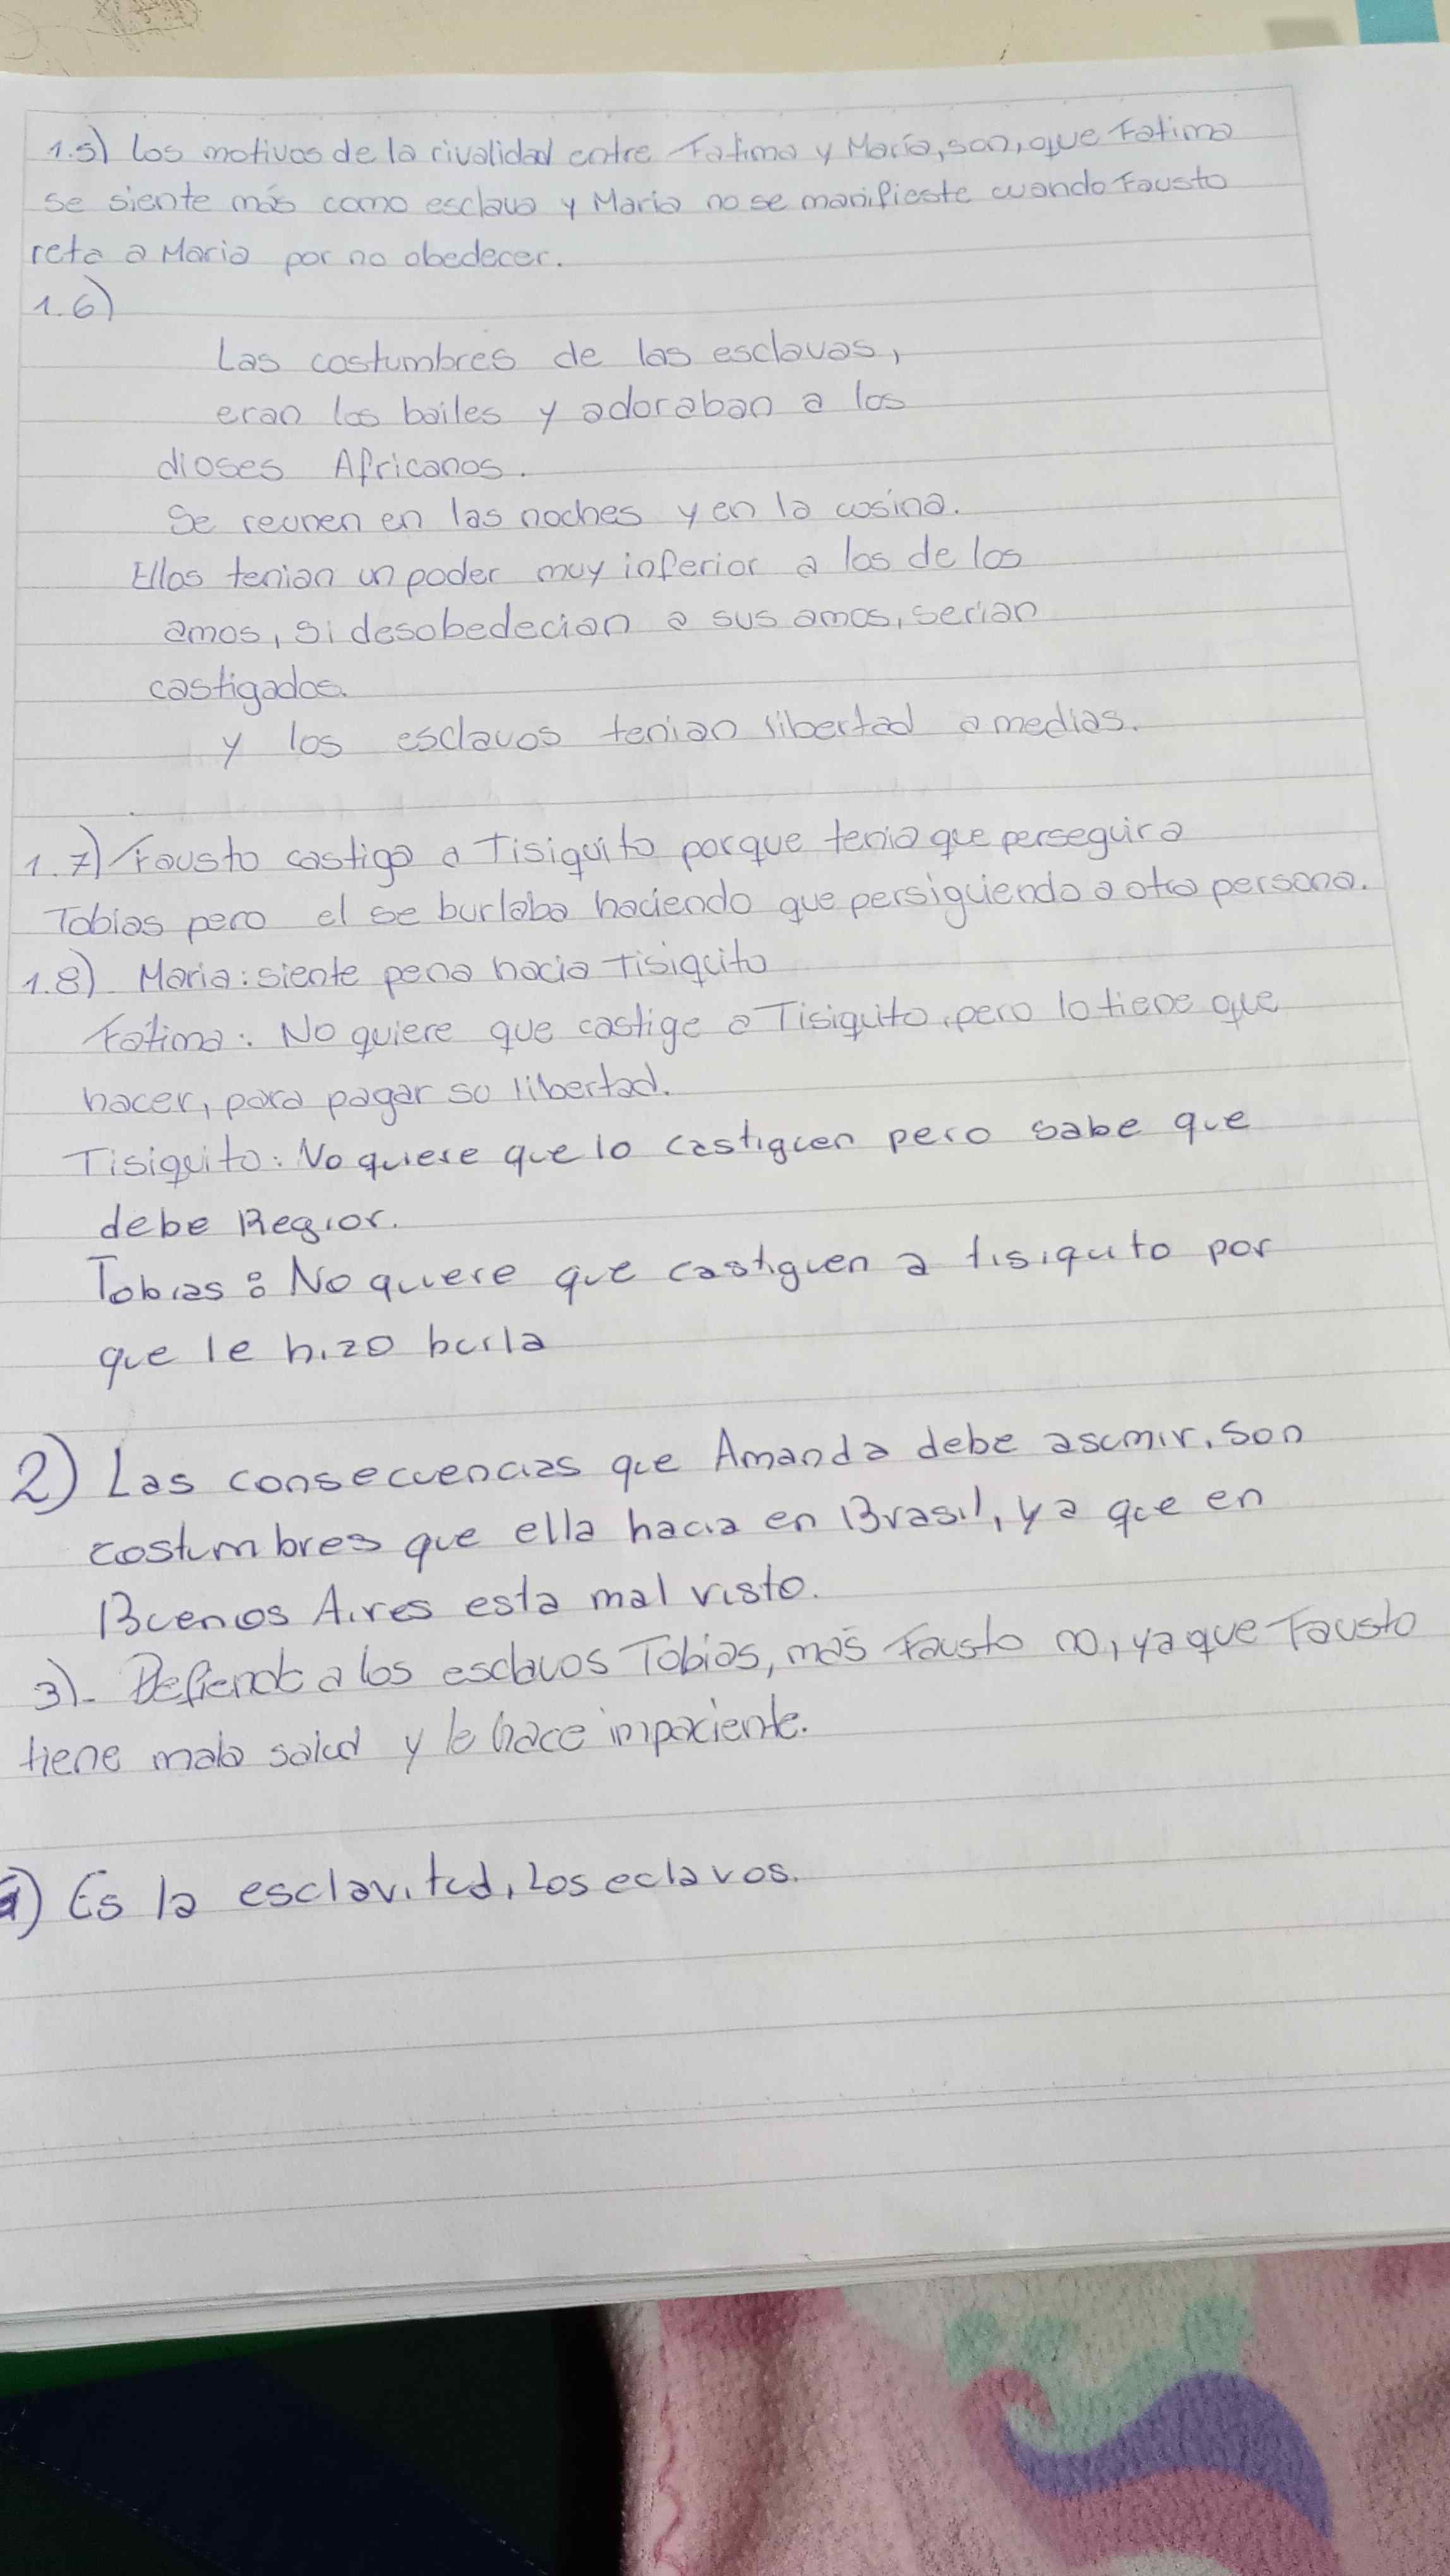 1.5) Los motivos de la rivalidad entre Fatima y María, son, que Fatima
se siente más como esclava y Maria no se manifieste cuando Fausto
reta a Maria por no obedecer.
1.6)
Las costumbres de las esclavas,
eran los bailes y adoraban a los
dioses Africanos.
Se reunen en las noches y en la cosina.
Ellos tenian un poder muy inferior a los de los
amos, si desobedecian a sus amos, serian
castigados.
y los esclavos tenian libertad a medias.
1.7) Fausto castiga a Tisiquito porque tenia que perseguir a
Tobias pero el se burlaba haciendo que persiguiendo a otra persona.
1.8). Maria: siente pena hacia Tisiquito
Fátima: No quiere que castige a Tisiquito, pero lo tiene que
hacer, para pagar su libertad.
Tisiquito: No quiere que lo castiguen pero sabe que
debe
Tobias: No quiere que castiguen a tisiquito por
que le hizo burla
2) Las consecuencias que Amanda debe asumir, son
costumbres que ella hacia en Brasil, ya que en
Buenos Aires esta mal visto.
3).- Defiende a los esclavos Tobias, más Fausto no, ya que Fausto
tiene mala salud y lo hace impaciente.
Es la esclavitud, Los eclavos.